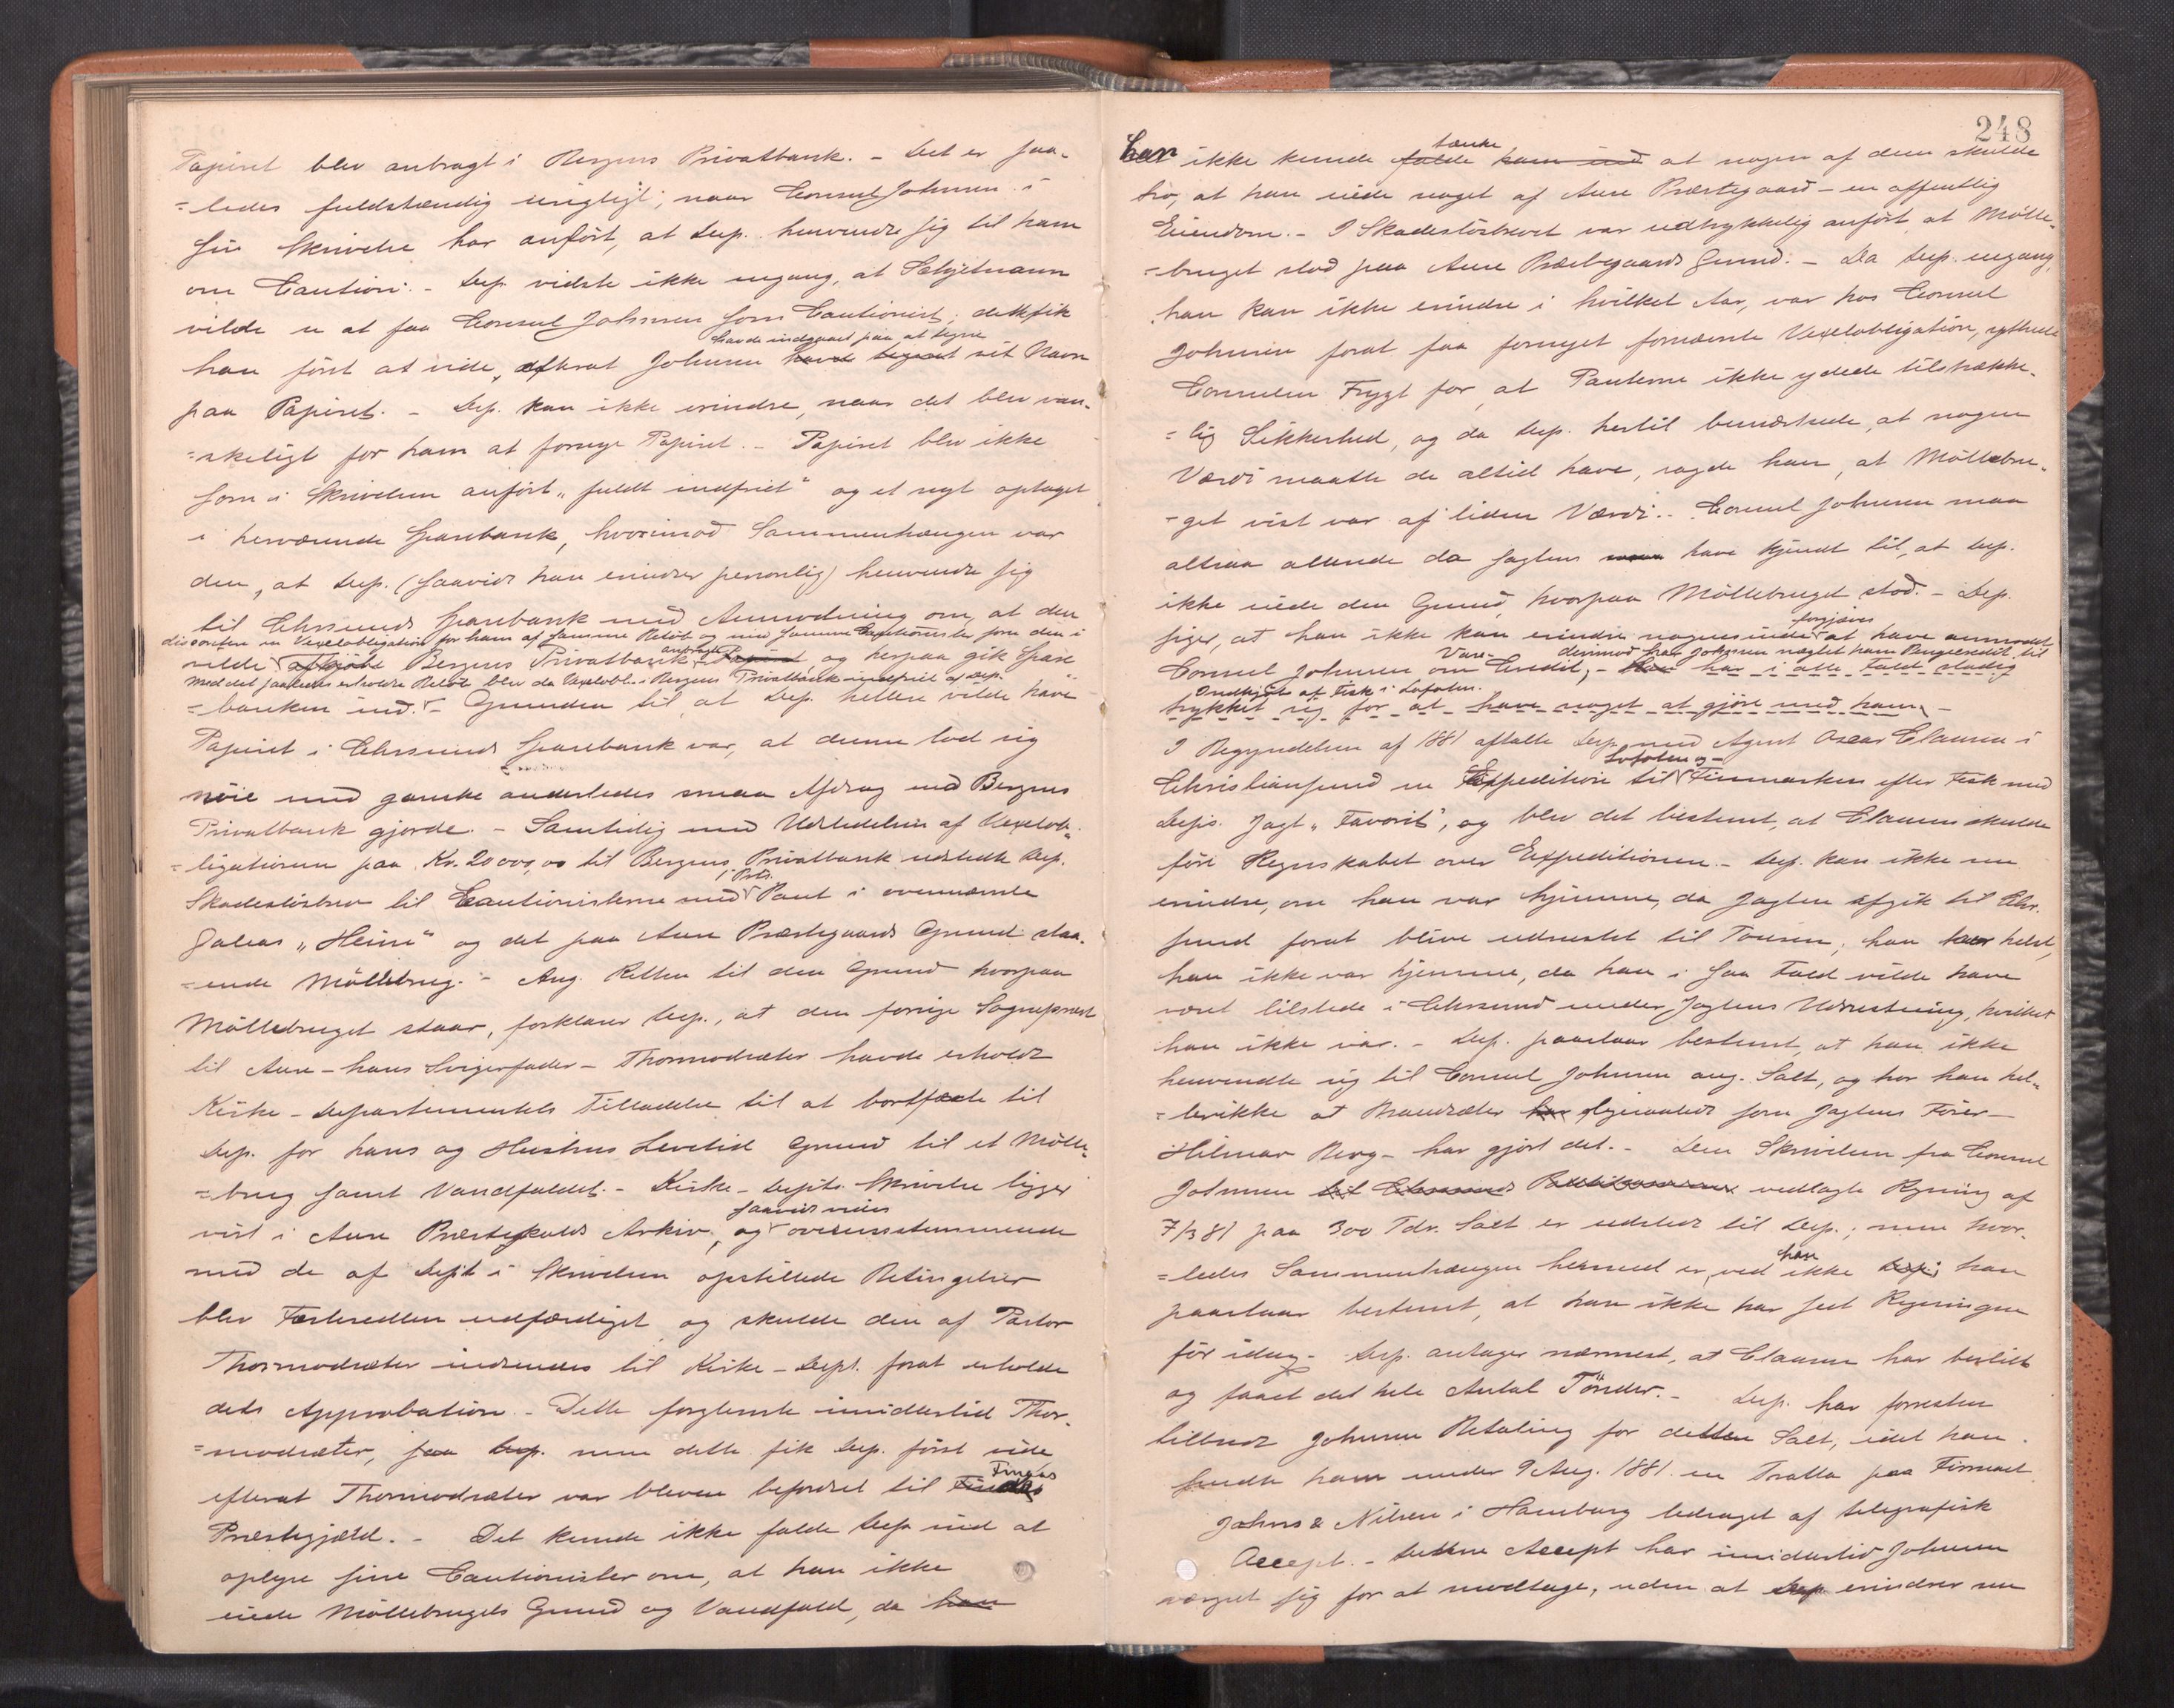 Papiret blev anbragt i Bergens Privatbank. – Det er saa-
=ledes fuldstændig urigtigt, naar Consul Johnsen i
sin Skrivelse har anført, at Dep. henvendte sig til ham
om Caution. – Dep. vidste ikke engang, at
vilde at faa Consul Johnsen som Cautionist; dette fik
havde indgaaet paa at tegne
han først at vide, efterat Johnsen havde tegnet sit Navn
paa Papiret. – Dep. kan ikke erindre, naar det blev van-
=skeligt for ham at fornye Papiret. – Papiret blev ikke
som i Skrivelsen anført „fuldt indfriet“ og et nyt optaget
i herværende Sparebank, hvorimod Sammenhængen var
den, at Dep. (saavidt han erindrer personlig) henvendte sig
til Chrsunds Sparebank med Anmodning om, at den
discontere en Vexelobligation for ham af samme Beløb og med samme Cautionister som den i
vilde afkjøbe Bergens Privatbank anbragte Papiret, og herpaa gik Spare
Med det saaledes erholdte Beløb blev da Vexelobl. i Bergens Privatbank indfriet af Dep.
=banken ind. – Grunden til, at Dep. hellere vilde have
Papiret i Chrsunds Sparebank var, at denne lod sig
nøie med ganske anderledes smaa Afdrag end Bergens
Privatbank gjorde. – Samtidig med Udstedelsen af Vexelob-
=ligationen paa Kr. 20000,00 til Bergens Privatbank udstedte Dep.
1 Prts.
Skadesløsbrev til Cautionisterne med Pant i ovennævnte
Galeas „Heine“ og det paa Aure Præstegaards Grund staa-
=ende Møllebrug. – Ang. Retten til den Grund hvorpaa
Møllebruget staar, forklarer Dep., at den forrige Sogneprest
til Aure – hans Svigerfader – Thormodsæter havde erholdt
Kirke-Departementets Tilladelse til at bortfæste til
Dep. for hans og Hustrus Levetid Grund til et Mølle-
=brug samt Vandfaldet. – Kirke-Depts. Skrivelse ligger
saavidt vides
vist i Aure Præstegjelds Arkiv, og overensstemmende
med de af Dept. i Skrivelsen opstillede Betingelser
blev Fæstesedlen udfærdiget og skulde den af Pastor
Thormodsæter indsendes til Kirke-Dept. forat erholde
dets Approbation. – Dette forglemte imidlertid Thor-
=modsæter, saa Dep. men dette fik Dep. først vide
Tingvos
efterat Thormodsæter var bleven befordret til
Præstegjæld. – Det kunde ikke falde Dep. ind at
oplyse sine Cautionister om, at han ikke
eiede Møllebrugets Grund og Vandfald, da han
248
tænke
han ikke kunde falde ham ind at nogen af dem skulde
tro, at han eiede noget af Aure Præstegaard – en offentlig
Eiendom. – I Skadesløsbrevet var udtrykkelig anført at Mølle-
=bruget stod paa Aure Præstegaards Grund. – Da Dep. engang,
han kan ikke erindre i hvilket Aar, var hos Consul
Johnsen forat faa fornyet fornævnte Vexelobligation, yttrede
Consulen Frygt for, at Panterne ikke ydede tilstrække-
=lig Sikkerhed, og da Dep. hertil bemærkede, at nogen
Værdi maatte de altid have, sagde han, at Møllebru-
=get vist var af liden Værdi. – Consul Johnsen maa
altsaa allerede da have kjendt til, at Dep.
ikke eiede den Grund, hvorpaa Møllebruget stod. – Dep.
forgjæves
siger, at han ikke kan erindre nogensinde at have anmodet
Vare- derimod har Johnsen nægtet ham Pengecredit til
Consul Johnsen om Credit, – han har i alle Fald stadig
Indkjøb af Fisk i Lofoten.
trykket sig for at have noget at gjøre med ham. –
I Begyndelsen af 1881 aftalte Dep. med Agent Oscar Clausen i
Lofoten og
Christiansund en Expedition til Finmarken efter Fisk med
Deps. Jagt „Favorit“, og blev det bestemt, at Clausen skulde
føre Regnskabet over Expeditionen. – Dep. kan ikke nu
erindre, om han var hjemme, da Jagten afgik til Chr.
sund forat blive udrustet til Touren; han troer helst,
han ikke var hjemme, da han i saa Fald vilde have
været tilstede i Chrsund under Jagtens Udrustning, hvilket
han ikke var. – Dep. paastaar bestemt, at han ikke
henvendte sig til Consul Johnsen ang. Salt, og tror han hel-
=ler ikke at har som Jagtens Fører –
Hilmar Berg – har gjort det. – Den Skrivelsen fra Consul
Johnsen til Chrsunds vedlagte Regning af
7/3 81 paa 300 Tdr. Salt er udstedt til Dep.; men hvor-
han
=ledes Sammenhængen hermed er, ved ikke Dep.; han
paastaar bestemt, at han ikke har seet Regningen
før idag. – Dep. antager nærmest, at Clausen har bestilt
og faaet det hele Antal Tønder. – Dep. har forresten
tilbudt Johnsen Betaling for dette Salt, idet han
sendte ham under 9 Aug. 1881 en Tratta paa Firmaet
Johns & Nilsen i Hamburg ledsaget af telegrafisk
Accept. – Denne Accept har imidlertid Johnsen
værget sig for at modtage, uden at Dep. erindrer nu